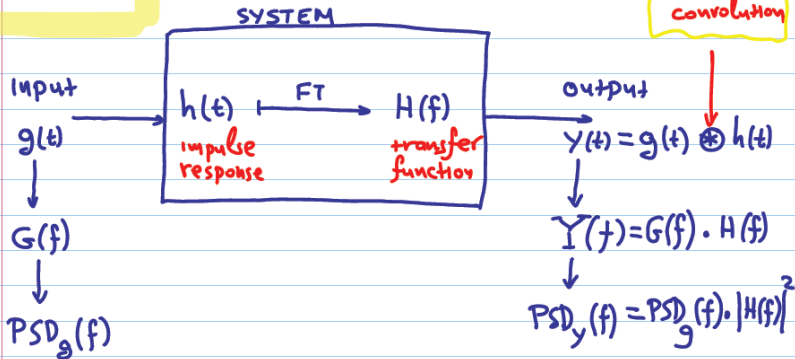 SYSTEM
convolution
input
g(t)
h(t) FT H(f)
impulse
response
transfer
function
output
y(t) = g(t) ⊛ h(t)
G(f)
Y(f) = G(f) . H(f)
PSD_g(f)
PSD_y(f) = PSD_g(f) . |H(f)|²